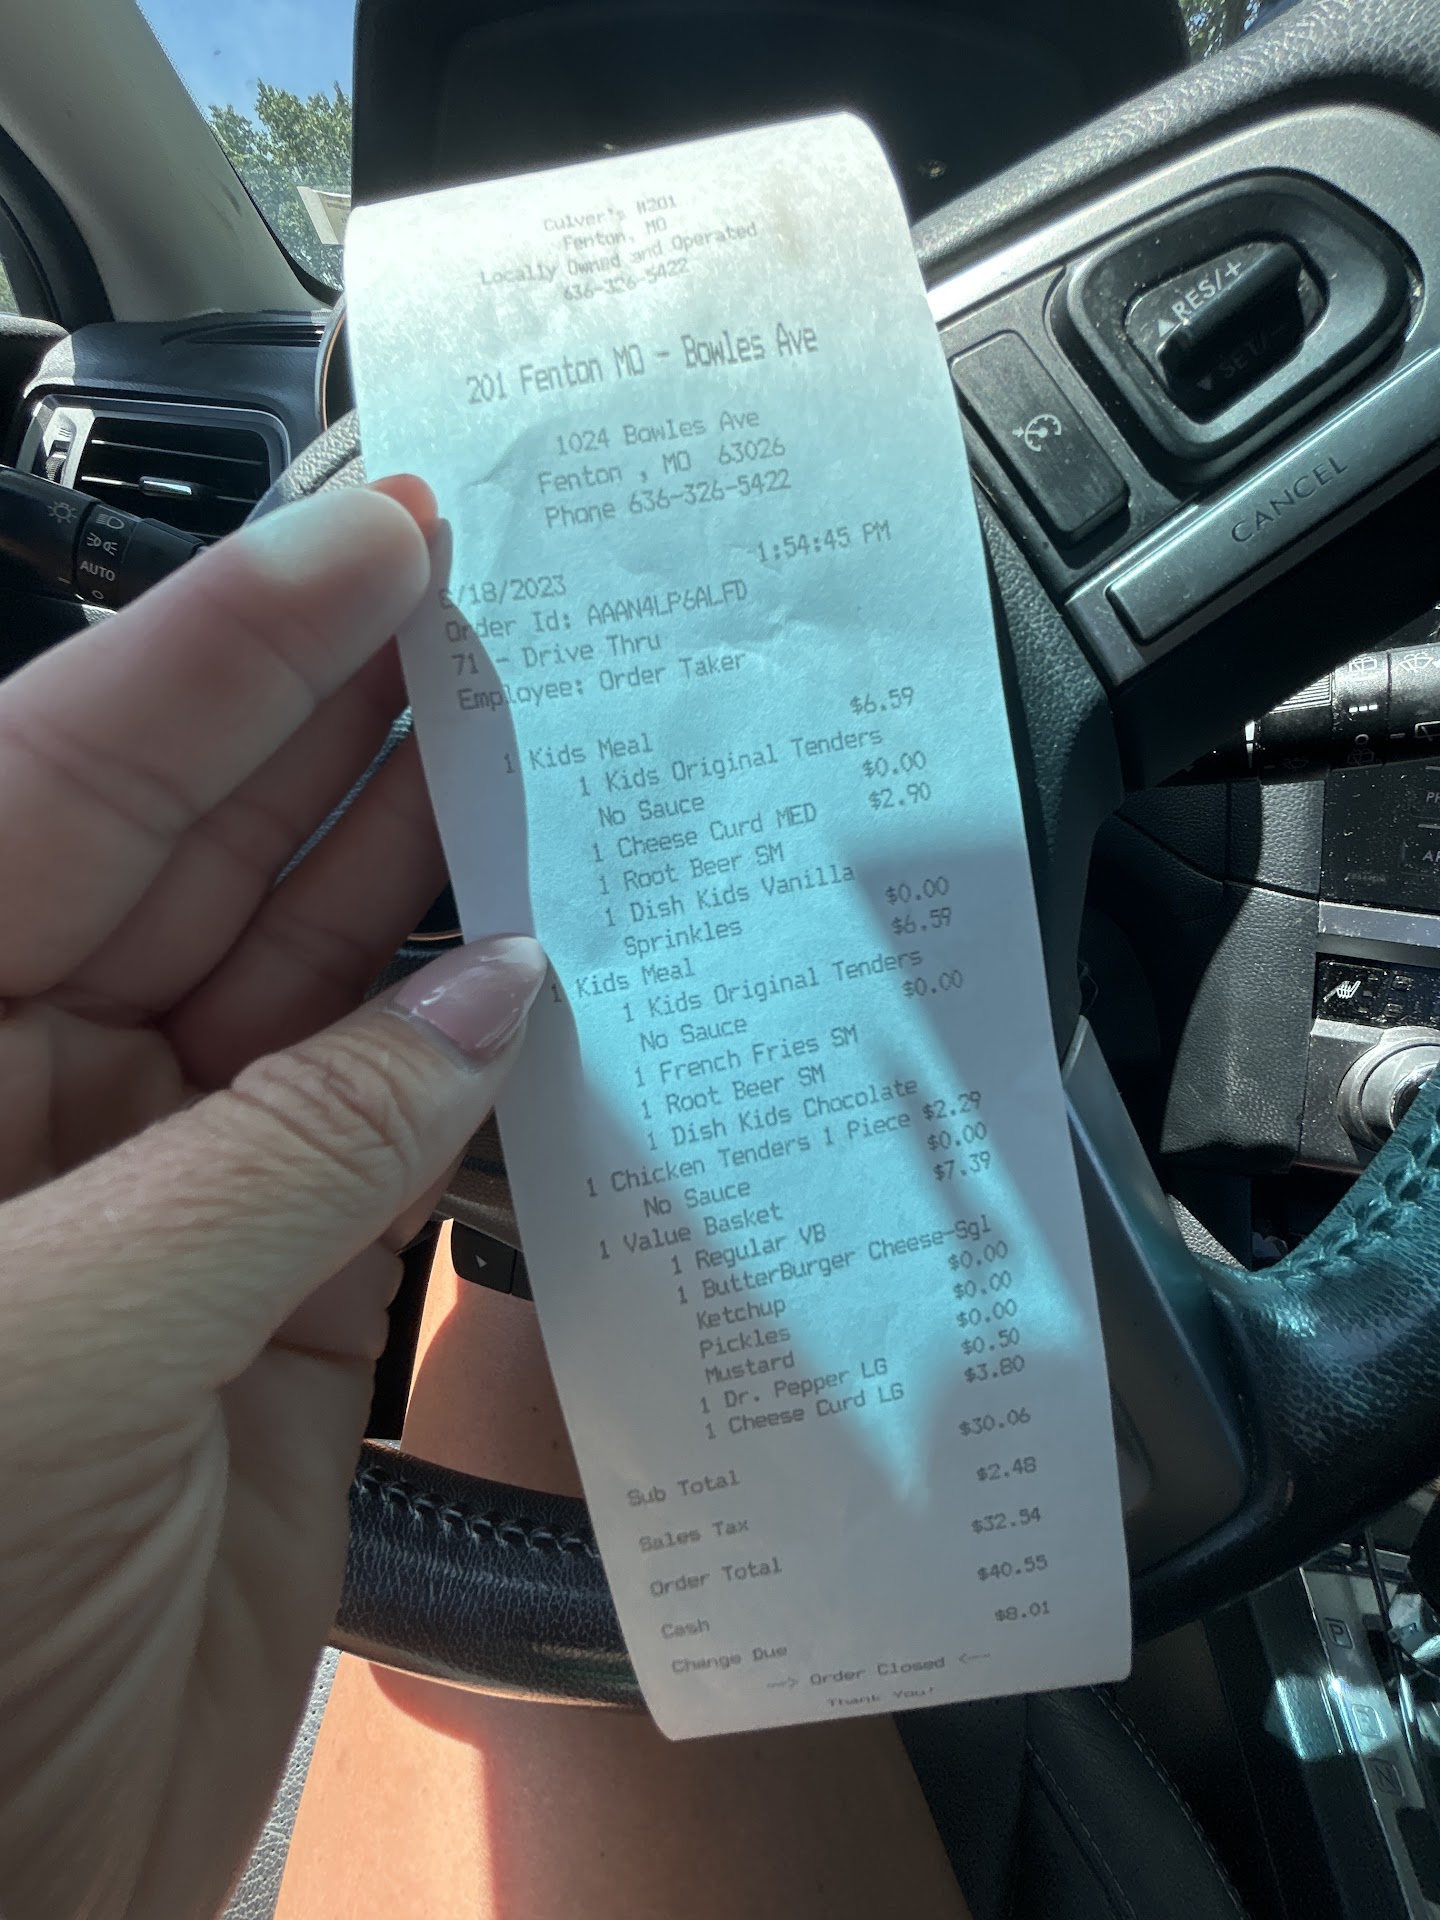 Culver's #201
Fenton, MO
Locally Owned and Operated
636-326-5422
201 Fenton MO - Bowles Ave
1024 Bowles Ave
Fenton , MO 63026
Phone 636-326-5422
1:54:45 PM
/18/2023
Order Id: AAAN4LP6ALFD
71 - Drive Thru
Employee: Order Taker
1 Kids Meal $6.59
1 Kids Original Tenders
No Sauce $0.00
1 Cheese Curd MED $2.90
1 Root Beer SM
1 Dish Kids Vanilla
Sprinkles $0.00
1 Kids Meal $6.59
1 Kids Original Tenders
No Sauce $0.00
1 French Fries SM
1 Root Beer SM
1 Dish Kids Chocolate
1 Chicken Tenders 1 Piece $2.29
No Sauce $0.00
1 Value Basket $7.39
1 Regular VB
1 ButterBurger Cheese-Sgl
Ketchup $0.00
Pickles $0.00
Mustard $0.00
1 Dr. Pepper LG $0.50
1 Cheese Curd LG $3.80
Sub Total $30.06
Sales Tax $2.48
Order Total $32.54
Cash $40.55
Change Due $8.01
---> Order Closed <---
Thank You!
RES/+
SET/-
CANCEL
AUTO
P
N